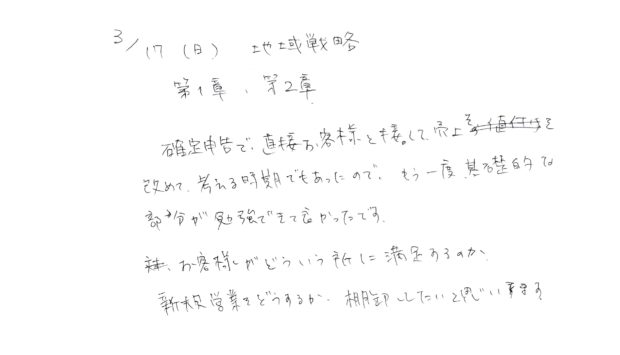 3/17 (日) 地域戦略
第1章、第2章
確定申告で、直接お客様と接して、売上を
改めて、考える時期でもあったので、もう一度、基礎的な
部分が勉強できて良かったです。
お客様がどういう所に満足するのか、
新規営業をどうするか、棚卸ししたいと思います